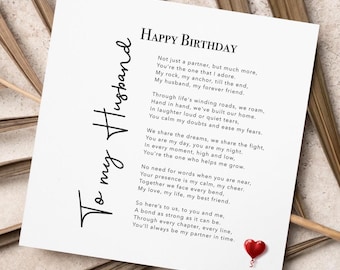 To my Husband
Happy Birthday
Not just a partner, but much more,
You're the one that I adore.
My rock, my anchor, till the end,
My husband, my forever friend.
Through life's winding roads, we roam,
Hand in hand, we've built our home.
In laughter loud or quiet tears,
You calm my doubts and ease my fears.
We share the dreams, we share the fight,
You are my day, you are my night.
In every moment, high and low,
You're the one who helps me grow.
No need for words when you are near,
Your presence is my calm, my cheer.
Together we face every bend,
My love, my life, my best friend.
So here's to us, to you and me,
A bond as strong as it can be.
Through every chapter, every line,
You'll always be my partner in time.